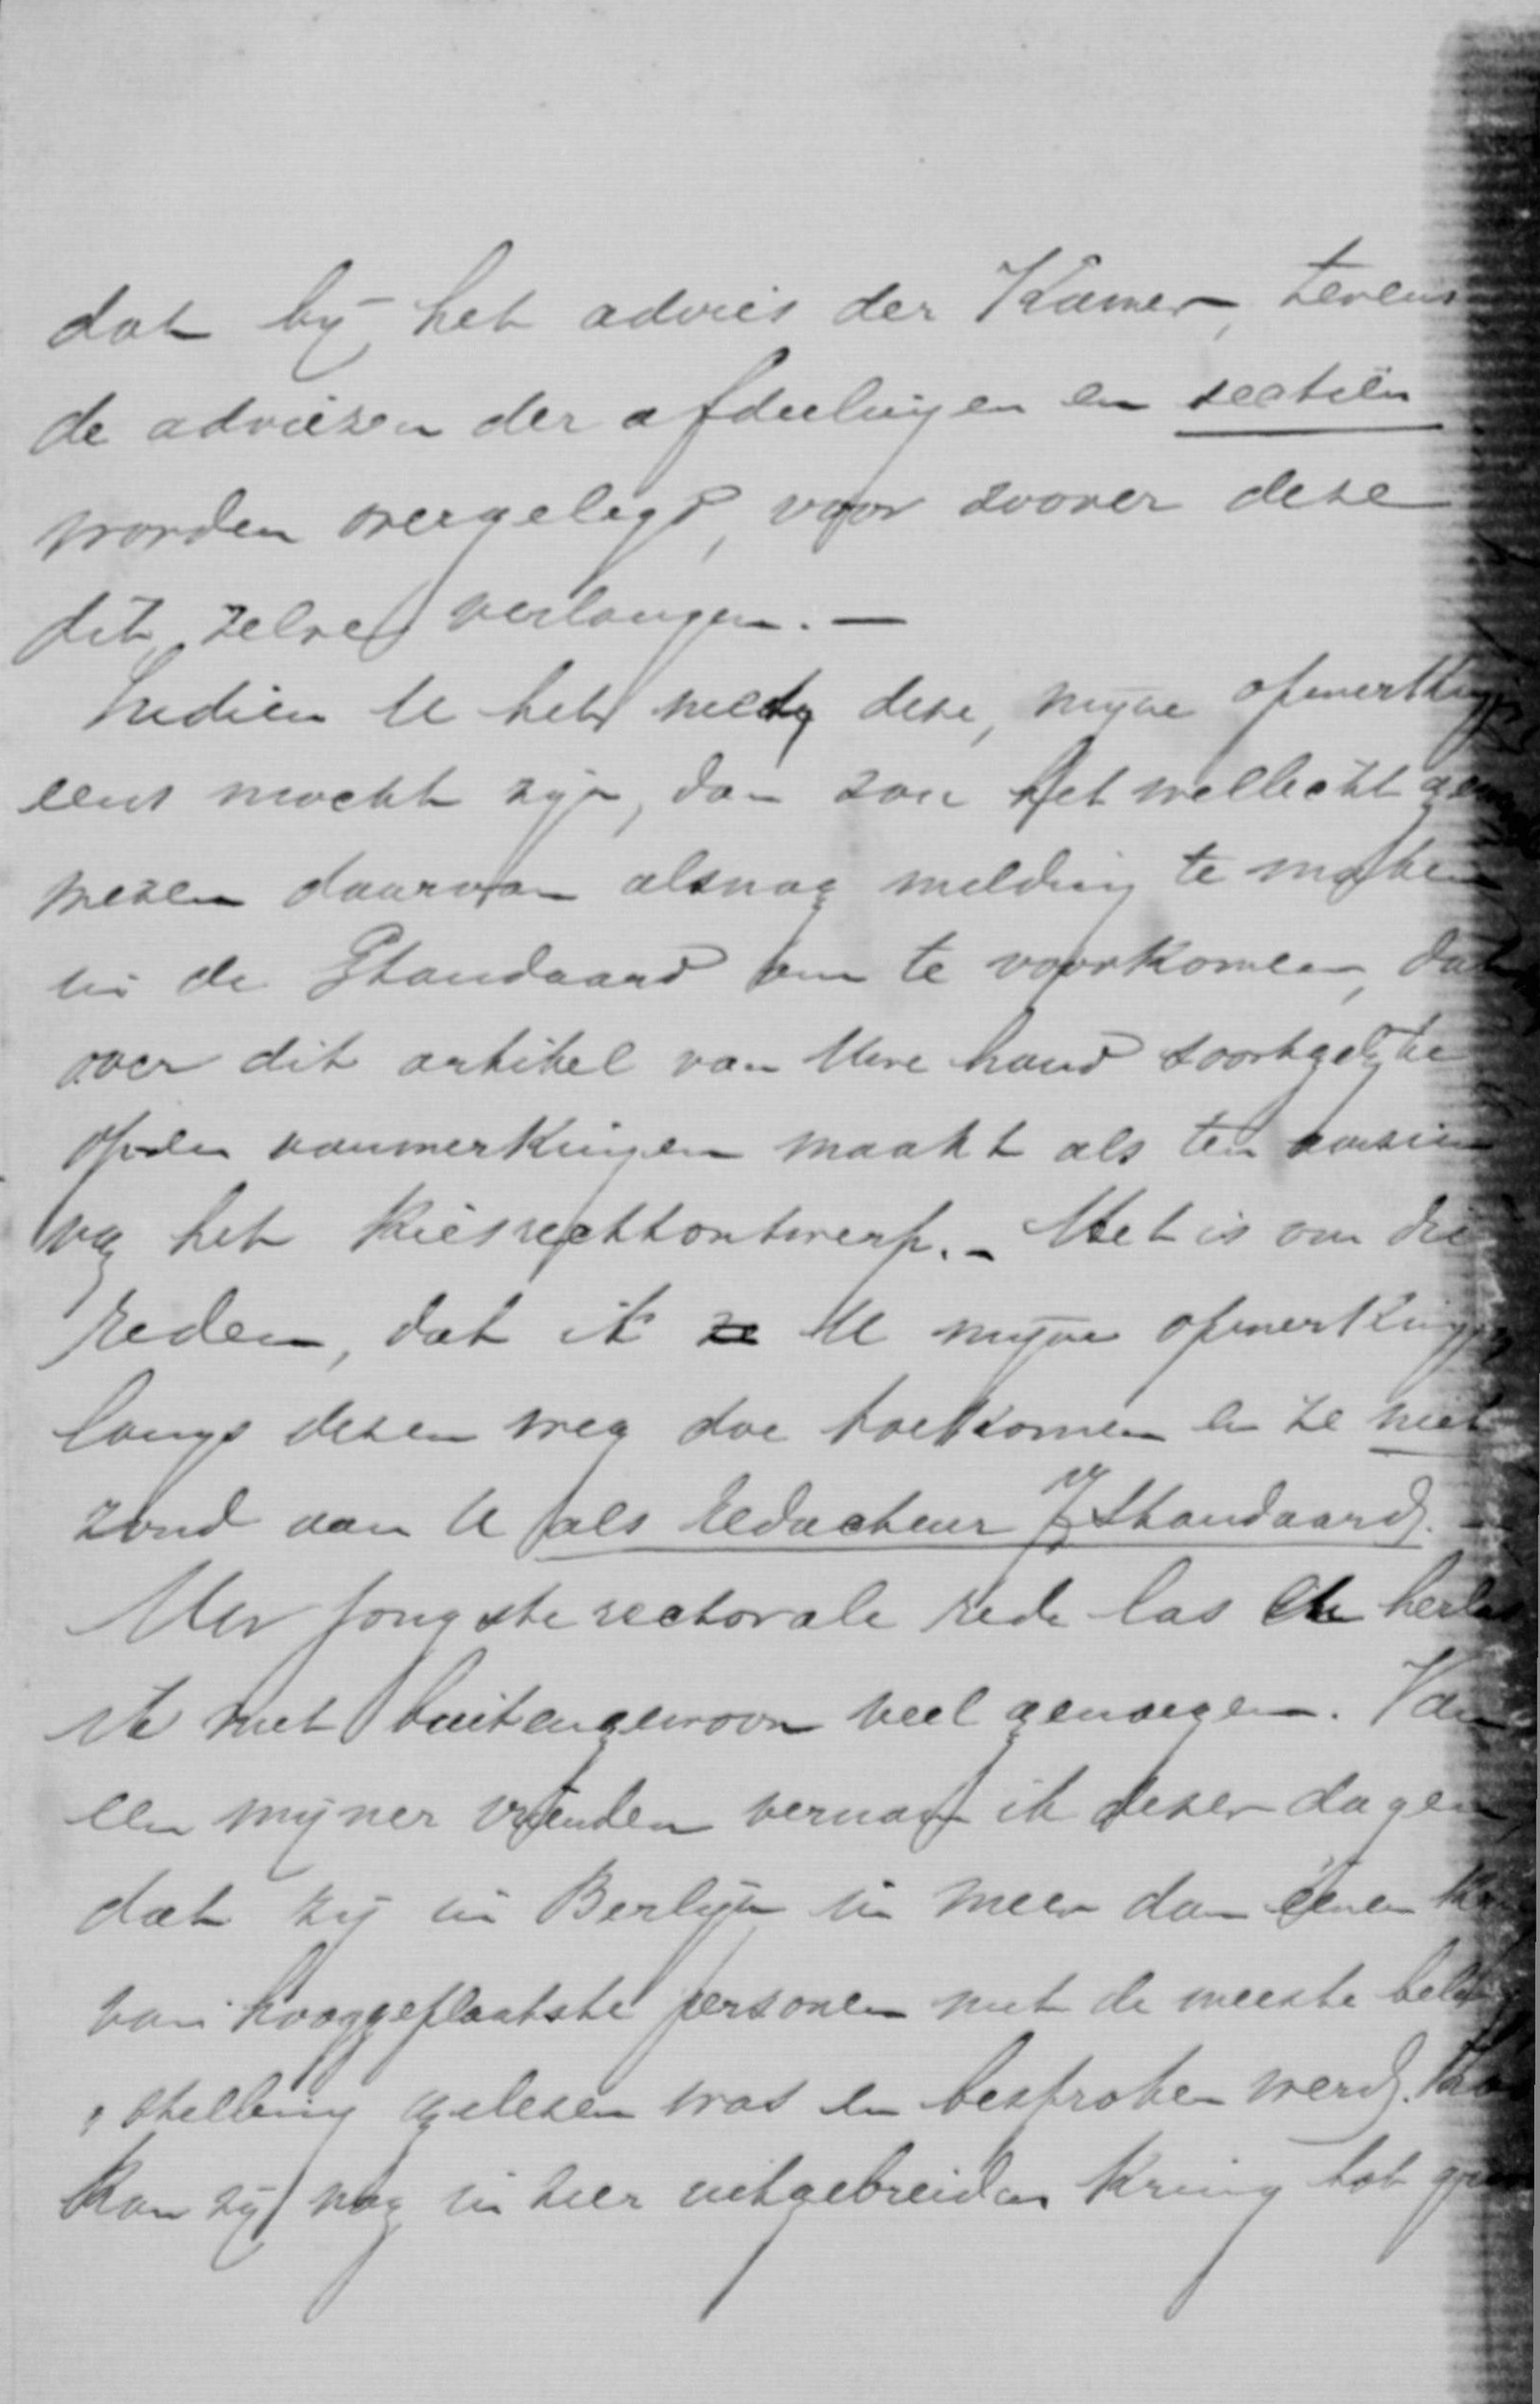 dat bij het advies der Kamer, tevens
de adviezen der afdeelingen en sectiën
worden overgelegd, voor zoover deze
dit zelve verlangen. —
Indien U het met deze, mijne opmerkingen
eens mocht zijn, dan zou het wellicht
wezen daarvan alsnog melding te maken
in de Standaard om te voorkomen, dat
over dit artikel van Uwe hand soortgelijke
op- en aanmerkingen maakt als ten aanzien
van het Kiesrechtontwerp. – Het is om die
reden, dat ik U mijne opmerkingen
langs dezen weg doe toekomen en ze niet
zond aan U als Redacteur v/d Standaard. –
Uw jongste rectorale rede las en herlas
ik met buitengewoon veel genoegen. Van
een mijner vrienden vernam ik dezer dagen
dat zij in Berlijn in meer dan éénen
van hooggeplaatste personen met de meeste belang-
stelling gelezen was en besproken werd.
kan zij nog in zeer uitgebreiden Kring tot